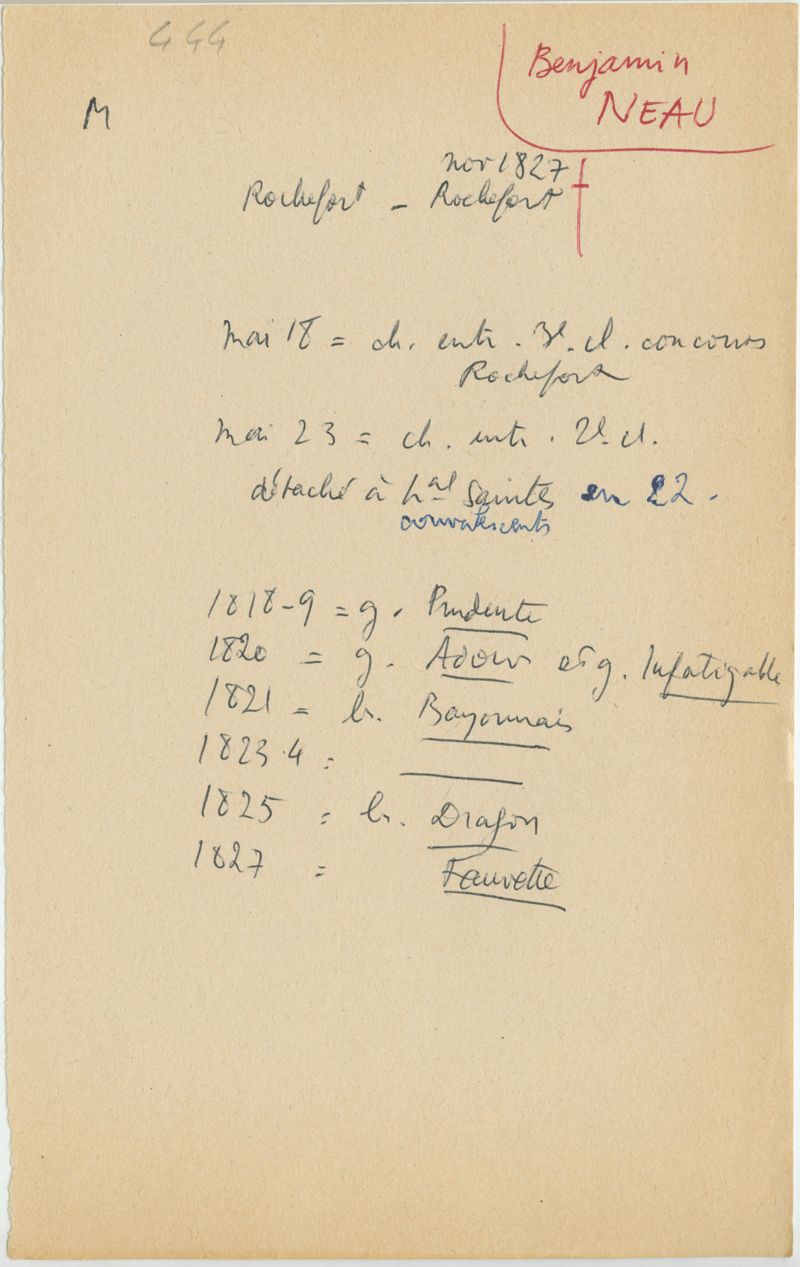 444
Benjamin
NEAU
M
nov 1827
Rochefort - Rochefort †
mai 18 = ch. entr. 3e. cl. concours
Rochefort
mai 23 = ch. entr. 2e. cl.
détaché à hal Saintes en 22.
convalescents
1818-9 = g. Prudente
1820 = g. Adour et g. Infatigable
1821 = br. Bayonnais
1823.4 =
1825 = br. Dragon
1827 = Fauvette